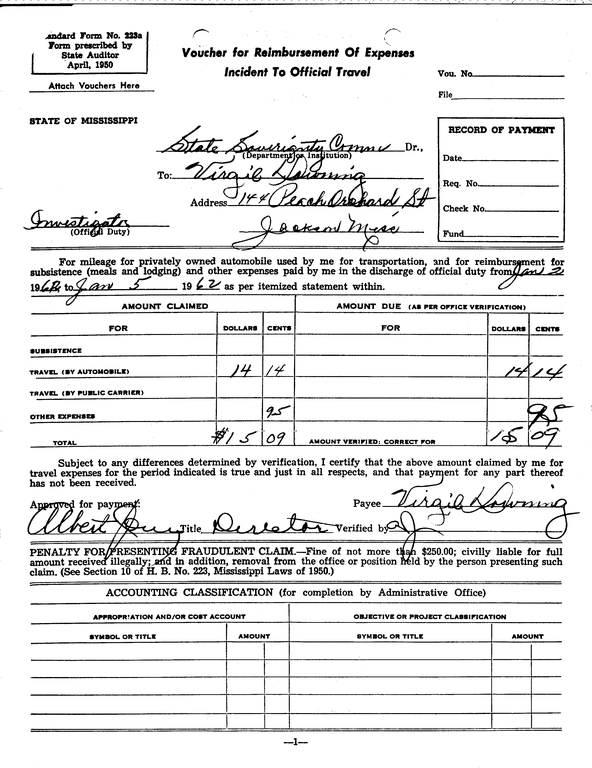 Standard Form No. 223a
Form prescribed by
State Auditor
April, 1950
Attach Vouchers Here
Voucher for Reimbursement Of Expenses
Incident To Official Travel
Vou. No.
File
STATE OF MISSISSIPPI
RECORD OF PAYMENT
Date
Req. No.
Check No.
Fund
State Soverignty Comm Dr.,
(Department or Institution)
To: Virgil Downing
Address 144 Peach Orchard St
Investigator Jackson Miss
(Official Duty)
For mileage for privately owned automobile used by me for transportation, and for reimbursement for
subsistence (meals and lodging) and other expenses paid by me in the discharge of official duty from Jan 2
1962, to Jan 5 1962 as per itemized statement within.
AMOUNT CLAIMED AMOUNT DUE (AS PER OFFICE VERIFICATION)
FOR DOLLARS CENTS FOR DOLLARS CENTS
SUBSISTENCE
TRAVEL (BY AUTOMOBILE) 14 14 14 14
TRAVEL (BY PUBLIC CARRIER)
OTHER EXPENSES 95 95
TOTAL $15 09 AMOUNT VERIFIED: CORRECT FOR 15 09
Subject to any differences determined by verification, I certify that the above amount claimed by me for
travel expenses for the period indicated is true and just in all respects, and that payment for any part thereof
has not been received.
Approved for payment: Payee Virgil Downing
Albert Title Director Verified by
PENALTY FOR PRESENTING FRAUDULENT CLAIM.—Fine of not more than $250.00; civilly liable for full
amount received illegally; and in addition, removal from the office or position held by the person presenting such
claim. (See Section 10 of H. B. No. 223, Mississippi Laws of 1950.)
ACCOUNTING CLASSIFICATION (for completion by Administrative Office)
APPROPRIATION AND/OR COST ACCOUNT OBJECTIVE OR PROJECT CLASSIFICATION
SYMBOL OR TITLE AMOUNT SYMBOL OR TITLE AMOUNT
—1—